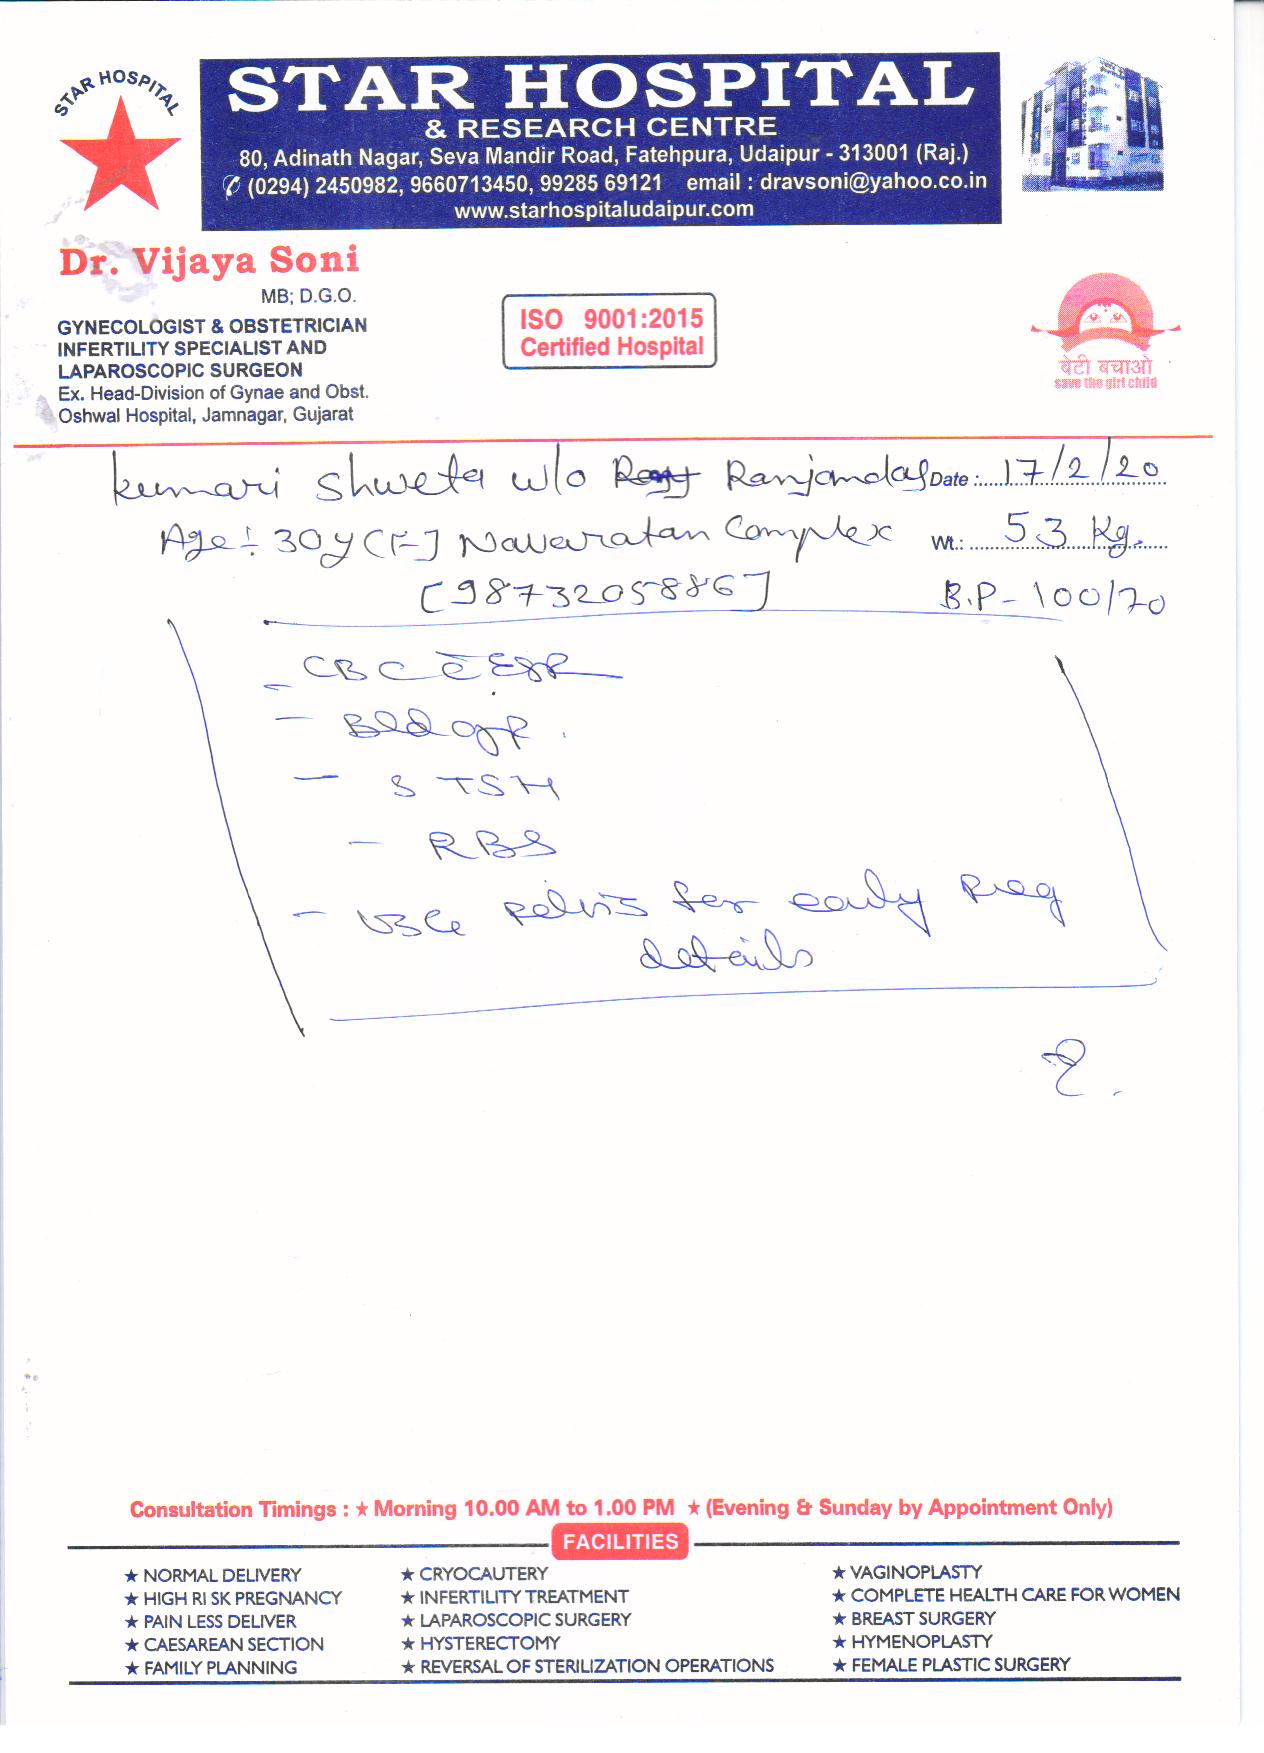 STAR HOSPITAL
STAR HOSPITAL
& RESEARCH CENTRE
80, Adinath Nagar, Seva Mandir Road, Fatehpura, Udaipur - 313001 (Raj.)
(0294) 2450982, 9660713450, 99285 69121 email : dravsoni@yahoo.co.in
www.starhospitaludaipur.com
Dr. Vijaya Soni
MB; D.G.O.
GYNECOLOGIST & OBSTETRICIAN
INFERTILITY SPECIALIST AND
LAPAROSCOPIC SURGEON
Ex. Head-Division of Gynae and Obst.
Oshwal Hospital, Jamnagar, Gujarat
ISO 9001:2015
Certified Hospital
बेटी बचाओ
save the girl child
Kumari Shweta w/o Ranjandas Date :17/2/20
Age :- 30y (F) Navaratan Complex Wt.: 53 Kg.
[9873205886] B.P - 100/70
- CBC c̄ ESR
- Bld grp.
- S TSH
- RBS
- USG pelvis for early preg
details
Consultation Timings : ★ Morning 10.00 AM to 1.00 PM ★ (Evening & Sunday by Appointment Only)
FACILITIES
★ NORMAL DELIVERY ★ CRYOCAUTERY ★ VAGINOPLASTY
★ HIGH RI SK PREGNANCY ★ INFERTILITY TREATMENT ★ COMPLETE HEALTH CARE FOR WOMEN
★ PAIN LESS DELIVER ★ LAPAROSCOPIC SURGERY ★ BREAST SURGERY
★ CAESAREAN SECTION ★ HYSTERECTOMY ★ HYMENOPLASTY
★ FAMILY PLANNING ★ REVERSAL OF STERILIZATION OPERATIONS ★ FEMALE PLASTIC SURGERY